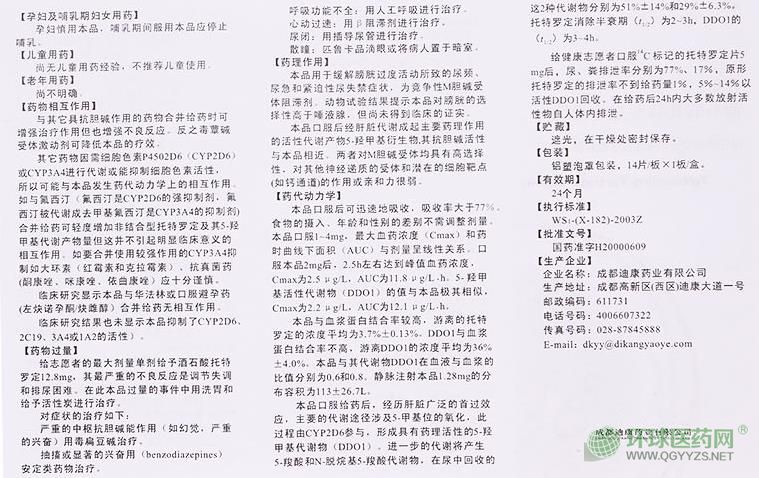 【孕妇及哺乳期妇女用药】
孕妇慎用本品，哺乳期间服用本品应停止
哺乳。
【儿童用药】
尚无儿童用药经验，不推荐儿童使用。
【老年用药】
尚不明确。
【药物相互作用】
与其它具抗胆碱作用的药物合并给药时可
增强治疗作用但也增强不良反应。反之毒蕈碱
受体激动剂可降低本品的疗效。
其它药物因需细胞色素P4502D6（CYP2D6）
或CYP3A4进行代谢或能抑制细胞色素活性，
所以可能与本品发生药代动力学上的相互作用。
如与氟西汀（氟西汀是CYP2D6的强抑制剂，氟
西汀被代谢成去甲基氟西汀是CYP3A4的抑制剂)
合并给药可轻度增加非结合型托特罗定及其5-羟
甲基代谢产物量但这并不引起明显临床意义的
相互作用。如要合并使用较强作用的CYP3A4抑
制如大环素（红霉素和克拉霉素）、抗真菌药
(酮康唑、咪康唑、依曲康唑）应十分谨慎。
临床研究显示本品与华法林或口服避孕药
(左炔诺孕酮/炔雌醇）合并给药无相互作用。
临床研究结果也未显示本品抑制了CYP2D6、
2C19、3A4或1A2的活性）。
【药物过量】
给志愿者的最大剂量单剂给予酒石酸托特
罗定12.8mg，其最严重的不良反应是调节失调
和排尿困难。在此本品过量的事件中用洗胃和
给予活性炭进行治疗。
对症状的治疗如下：
严重的中枢抗胆碱能作用（如幻觉，严重
的兴奋）用毒扁豆碱治疗。
抽搐或显著的兴奋用（benzodiazepines）
安定类药物治疗。
呼吸功能不全：用人工呼吸进行治疗。
心动过速：用β阻滞剂进行治疗。
尿闭：用插导尿管进行治疗。
散瞳：匹鲁卡品滴眼或将病人置于暗室。
【药理作用】
本品用于缓解膀胱过度活动所致的尿频、
尿急和紧迫性尿失禁症状，为竞争性M胆碱受
体阻滞剂。动物试验结果提示本品对膀胱的选
择性高于唾液腺，但尚未得到临床的证实。
本品口服后经肝脏代谢成起主要药理作用
的活性代谢产物5-羟甲基衍生物,其抗胆碱活性
与本品相近。两者对M胆碱受体均具有高选择
性，对其他神经递质的受体和潜在的细胞靶点
(如钙通道)的作用或亲和力很弱。
【药代动力学】
本品口服后可迅速地吸收，吸收率大于77%。
食物的摄入、年龄和性别的差别不需调整剂量。
本品口服1~4mg，最大血药浓度（Cmax）和药
时曲线下面积（AUC）与剂量呈线性关系。口
服本品2mg后，2.5h左右达到峰值血药浓度，
Cmax为2.5 μg/L，AUC为11.8 μg/L·h。5-羟甲
基活性代谢物（DDO1）的值与本品极其相似，
Cmax为2.2 μg/L，AUC为12.1 μg/L·h。
本品与血浆蛋白结合率较高，游离的托特
罗定的浓度平均为3.7%±0.13%。DDO1与血浆
蛋白结合率不高，游离DDO1的浓度平均为36%
±4.0%。本品与其代谢物DDO1在血液与血浆的
比值分别为0.6和0.8。静脉注射本品1.28mg的分
布容积为113±26.7L。
本品口服给药后，经历肝脏广泛的首过效
应，主要的代谢途径涉及5-甲基位的氧化，此
过程由CYP2D6参与，形成具有药理活性的5-羟
甲基代谢物（DDO1）。进一步的代谢将产生
5-羧酸和N-脱烷基5-羧酸代谢物，在尿中回收的
这2种代谢物分别为51%±14%和29%±6.3%。
托特罗定消除半衰期（t1/2）为2~3h，DDO1的
（t1/2）为3~4h。
给健康志愿者口服14C标记的托特罗定片5
mg后，尿、粪排泄率分别为77%、17%，原形
托特罗定的排泄率不到给药量1%，5%~14%以
活性DDO1回收。在给药后24h内大多数放射活
性物自人体内排泄。
【贮藏】
遮光，在干燥处密封保存。
【包装】
铝塑泡罩包装，14片/板×1板/盒。
【有效期】
24个月
【执行标准】
WS1-(X-182)-2003Z
【批准文号】
国药准字H20000609
【生产企业】
企业名称：成都迪康药业有限公司
生产地址：成都高新区(西区)迪康大道一号
邮政编码：611731
电话号码：4006607322
传真号码：028-87845888
E-mail：dkyy@dikangyaoye.com
成都迪康药业有限公司
环球医药网
WWW.QGYYZS.NET